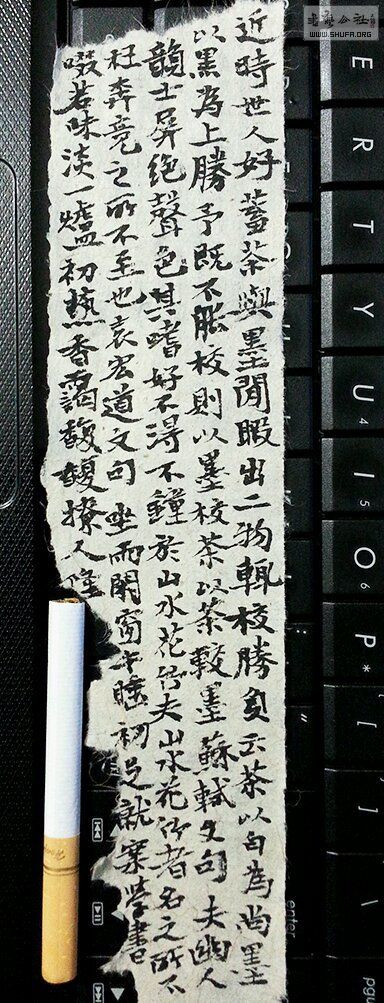 近時世人好蓄茶與墨閒暇出二物輒校勝負云茶以白為尚墨
以黑為上勝予既不能校則以墨校茶以茶較墨蘇軾文句 夫幽人
韻士屏絕聲色其嗜好不得不鐘於山水花竹夫山水花竹者名之所不
在奔竞之所不至也袁宏道文句 坐雨閉窗午睡初足就案學書
啜茗味淡一爐初爇香靄馥馥撩人
老書公社
WWW.SHUFA.ORG
E
R
T
Y
U
4
I
5
O
6
P
*
[
]
\
enter
pgu